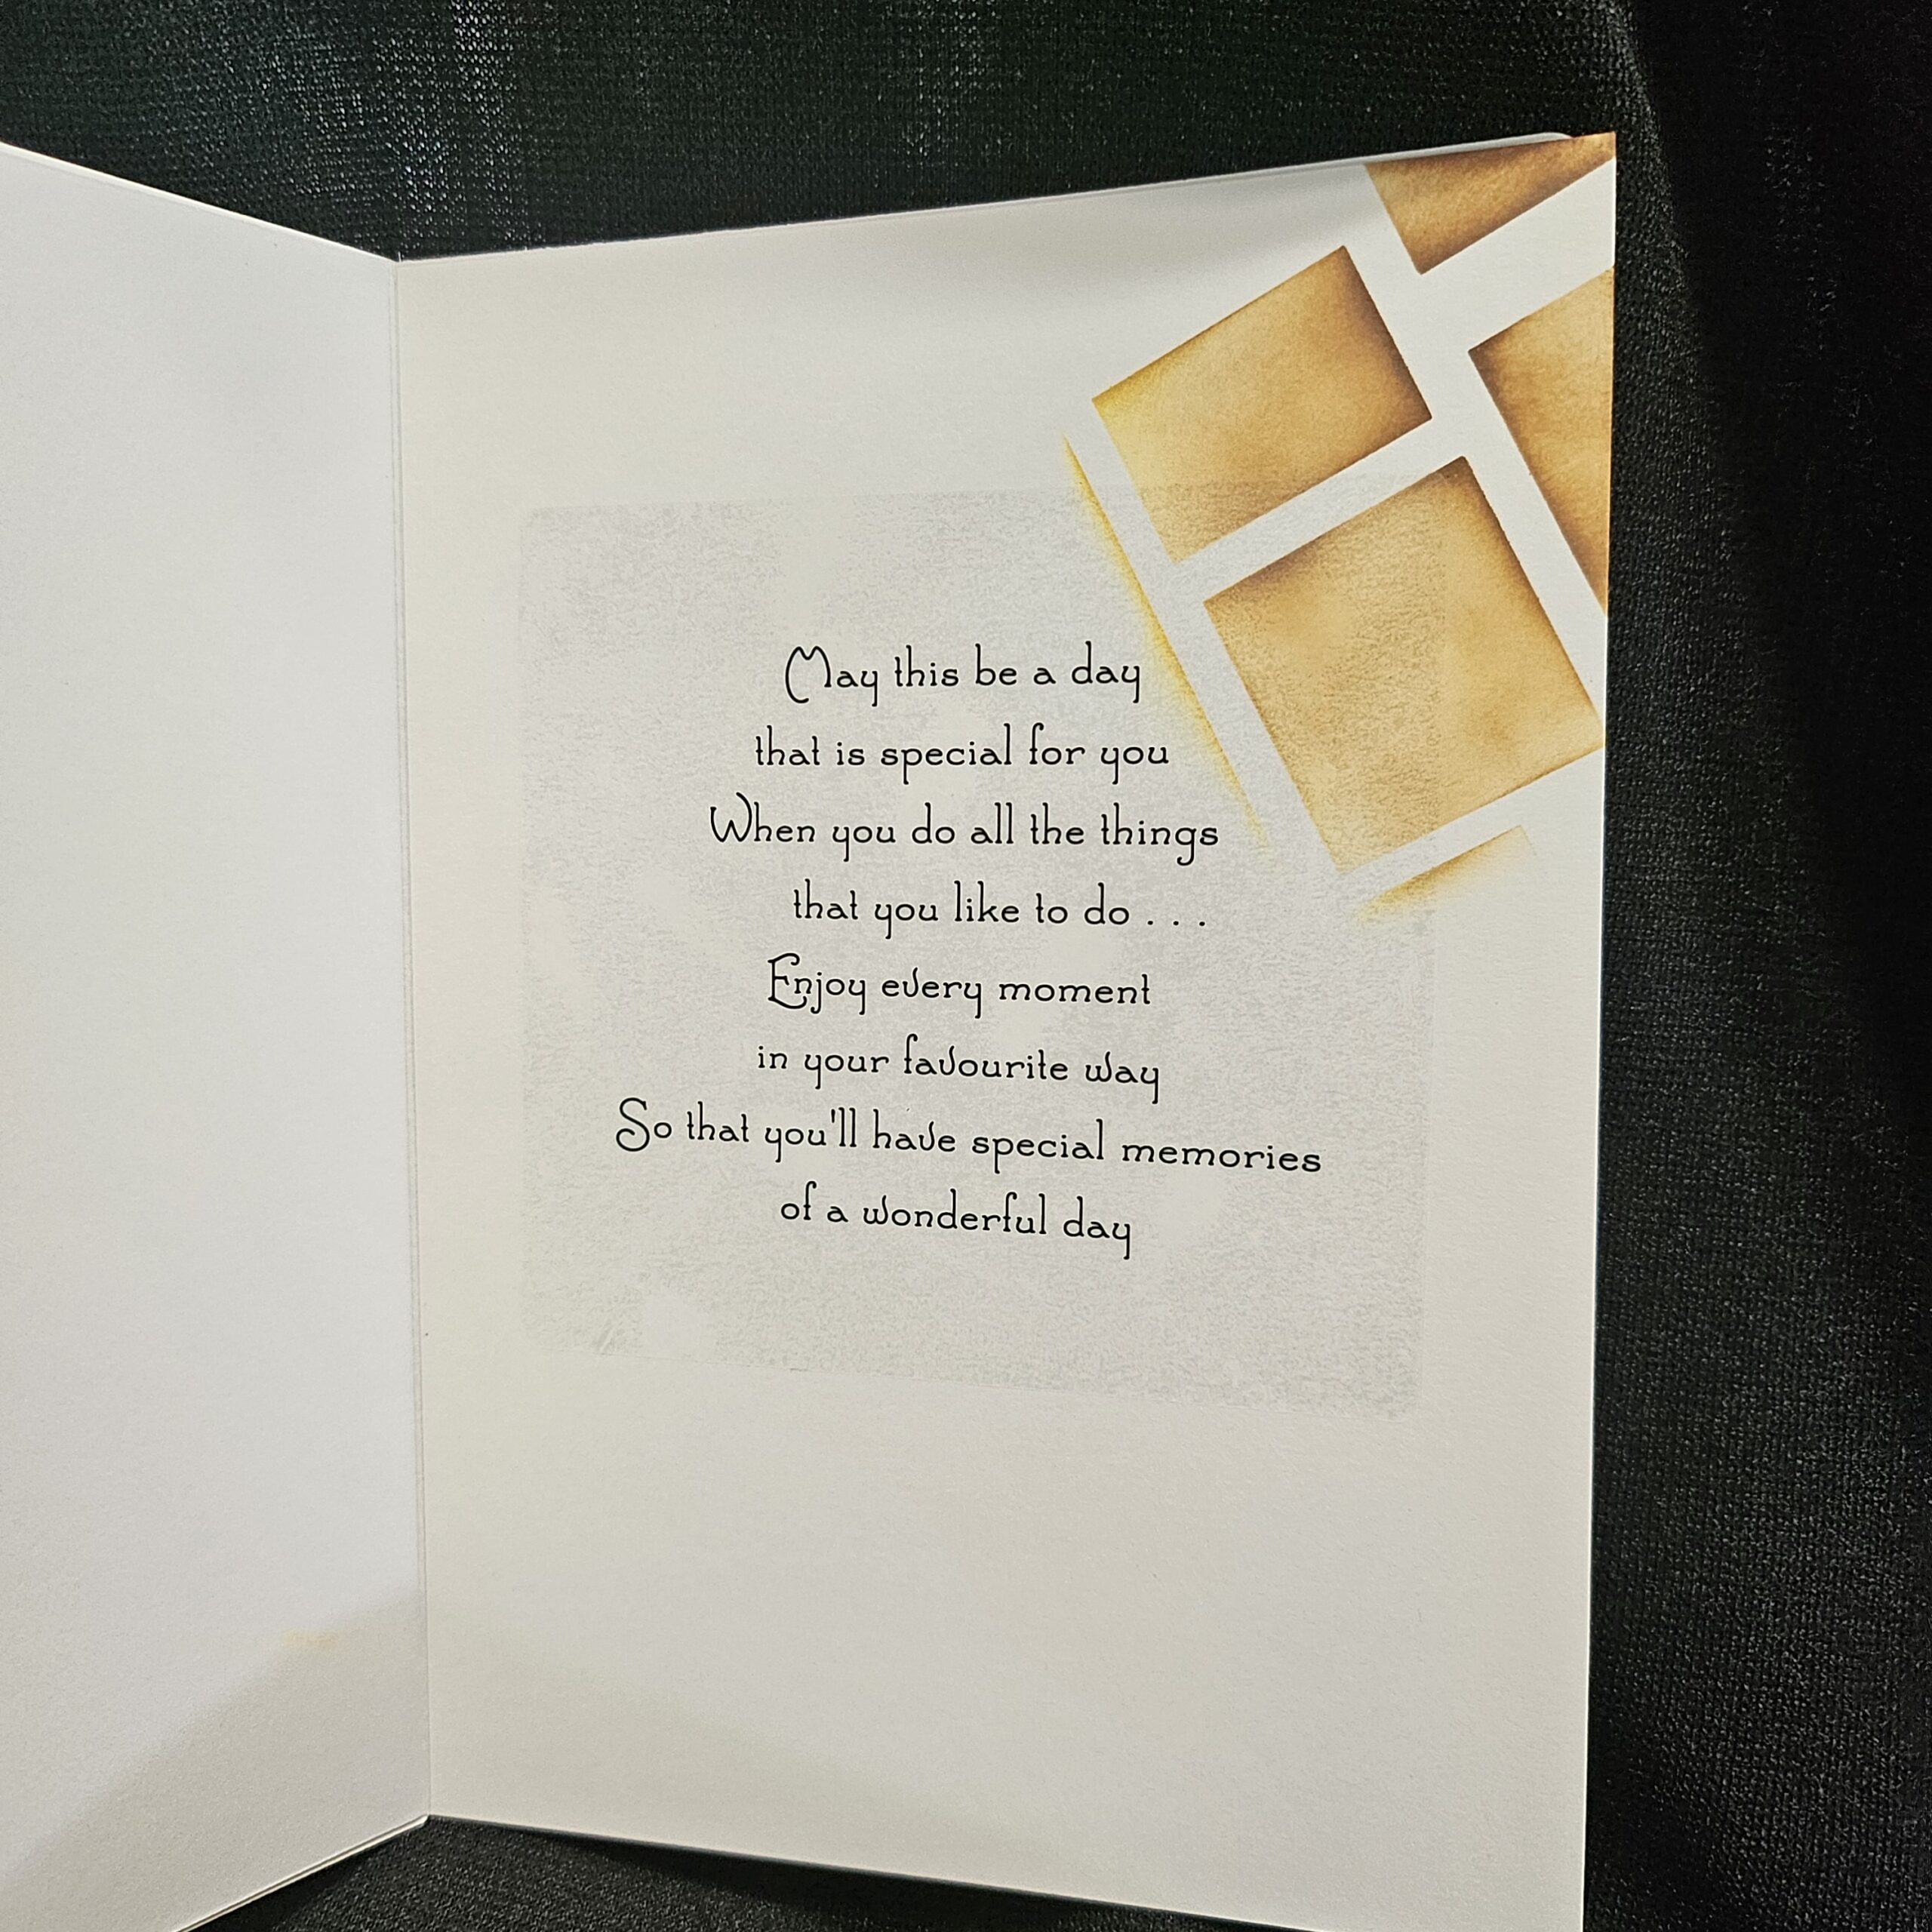 May this be a day
that is special for you
When you do all the things
that you like to do . . .
Enjoy every moment
in your favourite way
So that you'll have special memories
of a wonderful day